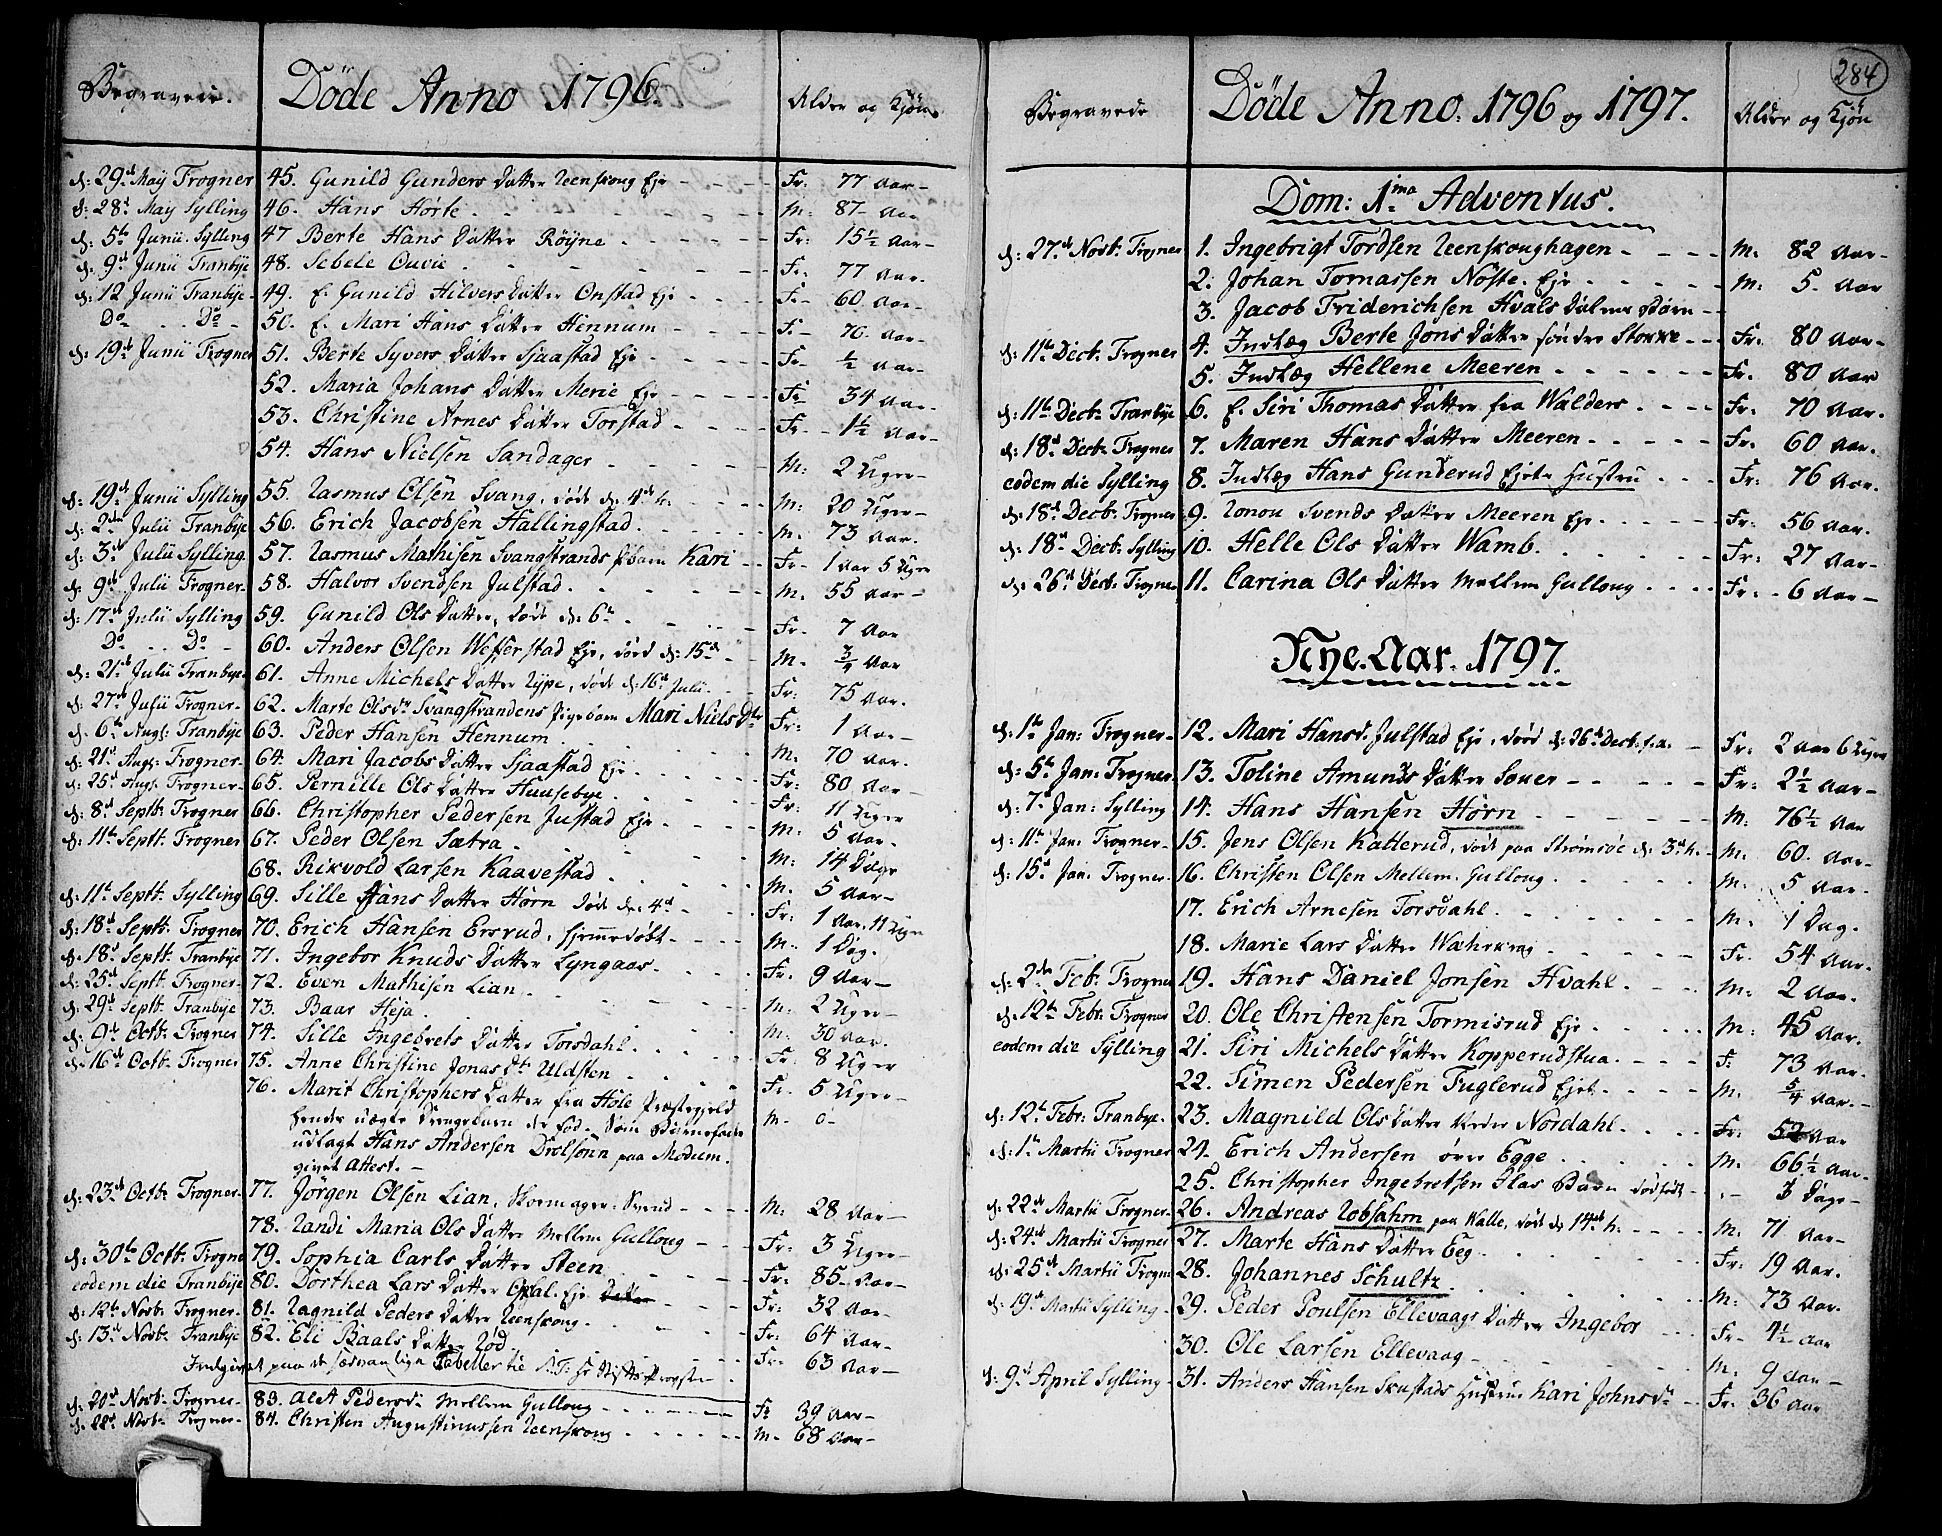 284
Begravede. Døde Anno 1796. Alder og Kjøn
d: 29de May Trogner 45. Gunild Gunders Datter Reenskoug Eje Fr. 77 Aar
d: 28de May Sylling 46. Hans Hørte M: 87 Aar
d: 5te Junii Sylling 47 Berte Hans Datter Røyne Fr: 15½ Aar
d: 9de Junii Tranbye 48. Sebele Ouvie Fr. 77 Aar
d: 12 Junii Tranbye 49. E. Gunild Hilvers Datter Onstad Eje F. 60 Aar
Do Do 50. E. Mari Hans Datter Hennum F. 70 Aar
d: 19de Junii Trogner 51. Berte Syvers Datter Sjaastad Eje Fr ½ Aar
52. Maria Johans Datter Merie Eje Fr 34 Aar
53. Christine Arnes Datter Torstad Fr. 1½ Aar
54. Hans Nielsen Sandager M: 2 Uger
d: 19de Junii Sylling 55. Rasmus Olsen Svang, død d: 11te h. M: 20 Uger
d: 2den Julii Tranbye 56. Erich Jacobsen Hallingstad M. 73 Aar.
d: 3de Julii Sylling 57. Rasmus Mathisen Svangstrands Barn Kari Fr 1 Aar 5 Uger
d: 9de Julii Trogner 58. Halvor Svendsen Julstad M. 55 Aar
d: 17de Julii Sylling 59. Gunild Ols Datter, døde d: 6te Fr. 7 Aar
Do Do 60. Anders Olsen Wefferstad Eje, død d: 15de M. ¾ Aar
d: 21de Julii Tranbye 61. Anne Michels Datter Rype, døde d: 16de Julii Fr: 75 Aar.
d: 27de Julii Trogner 62. Marte Olsdr Svangstrandens Pigebarn Mari Niels Dtr Fr: 1 Aar
d. 6te Augs: Tranbye 63. Peder Hansen Hennum M: 70 Aar.
d: 21de Augs: Trogner 64. Mari Jacobs Datter Sjaastad Eje Fr: 80 Aar
d: 25de Augs: Trogner 65. Pernille Ols Datter Huusebye Fr: 11 Uger
d: 8de Septb: Trogner 66. Christopher Pedersen Justad Eje M: 5 Aar.
d: 11te Septb: Trogner 67. Peder Olsen Sætra M: 14 Dage
68. Rikvold Larsen Kaavestad M. 5 Aar
d: 11te Septb: Sylling 69. Sille Hans Datter Hørn død d: 4de Fr: 1 Aar, 11 Uger
d: 18de Septb: Trogner 70. Erich Hansen Ersrud, hjemmedøbt M: 1 Dag.
d: 18de Septb: Tranbye 71. Ingebor Knuds Datter Lyngaas Fr: 9 Aar
d: 25de Septb: Trogner 72. Even Mathisen Lian M: 2 Uger
d: 29de Septb: Tranbye 73. Baar Heja M: 30 Aar.
d: 9de Octb: Trogner 74. Sille Ingebrets Datter Torsdahl F: 8 Uger
d: 16de Octb: Trogner 75. Anne Christine Jonas Dtr Uldsten Fr. 5 Uger
76. Marit Christophers Datter fra Hole Præstegjeld M. 0
hendes uægte Drengebarn død fød. Som Barnefader
udlagt Hans Andersen Drolsønn paa Modum.
givet Attest.
d: 23de Octb: Trogner 77. Jørgen Olsen Lian, Skomager: Svend M: 28 Aar
78. Randi Maria Ols Datter Mellem Gulloug Fr: 3 Uger
d: 30te Octb: Trogne 79. Sophia Carls Datter Steen Fr: 85 Aar
eodem die Tranbye 80. Dorthea Lars Datter Opsal Eje Fr: 32 Aar
d: 12te Novb: Trogner 81. Ragnild Peders Datter Reenskoug Fr: 64 Aar
d: 13de Novb: Tranbye 82. Eli Baals Datter Rød Fr. 63 Aar
Indgivet paa de sædvanlige Tabeller til
d: 20de Novb: Trogner 83. Alet Pedersdr Mellem Gulloug Fr 39 Aar
d: 22de Novb: Trogner 84. Christen Augustinussen Reenskoug M. 68 Aar
Begravede Døde Anno. 1796 og 1797. Alder og Kjøn
Dom: 1ma Adventus.
d: 27de Novb: Trogner 1. Ingebrigt Tordsen Reenskoughagen M. 82 Aar
2. Johan Tomassen Nøste. Eje M: 5. Aar
3. Jacob Friderichsen Hvals Datters Børn
d: 11te Decb: Trogner 4. Indlæg Berte Jons Datter søndre Stokke Fr. 80 Aar
5. Indlæg Hellene Meeren Fr. 80 Aar
d: 11te Decb: Tranbye 6. E. Siri Thomas Datter fra Walders Fr: 70 Aar.
d: 18de Decb: Trogner 7. Maren Hans Datter Meeren Fr: 60 Aar.
eodem die Sylling 8. Indlæg Hans Gunderud Ejets Hustru Fr: 76 Aar.
d: 18de Decb: Trogner 9. Ronou Svends Datter Meeren Eje Fr: 56 Aar.
d: 18de Decb: Sylling 10. Helle Ols Datter Wamb. Fr: 27 Aar
d: 26de Decb: Trogner 11. Carina Ols Datter Mellem Gulloug Fr: 6 Aar
Nye-Aar. 1797.
d: 1te Jan: Trogner 12. Mari Hansd. Julstad Eje, død d: 26de Decb: f.a. Fr: 2 Aar 6 Uger
d: 5te Jan: Trogner 13. Toline Amunds Datter Souer Fr: 2½ Aar
d: 7de Jan: Sylling 14. Hans Hansen Hørn M: 76½ Aar
d: 11te Jan: Trogner 15. Jens Olsen Katterud, død paa Strømsøe d: 3de h. M: 60. Aar
d: 15de Jan: Trogner 16. Christen Olsen Mellem. Gulloug M: 5 Aar.
17. Erich Arnesen Torsdahl M: 1 Dag.
18. Marie Lars Datter Wæhrkrag Fr. 54 Aar.
d: 2den Feb: Trogner 19. Hans Daniel Jonsen Hvahl M: 2 Aar.
d: 12te Febr: Trogner 20. Ole Christensen Tormisrud Eje M: 45 Aar.
eodem die Sylling 21. Siri Michels Datter Kopperudstua F: 73 Aar.
22. Simen Pedersen Fuglerud Ejet M. 5/4 Aar.
d: 12te Febr: Tranbye. 23. Magnild Ols Datter Nedre Nordahl Fr: 52 Aar
d: 1te Martii Trogner 24. Erich Andersen øvre Egge M. 66½ Aar
25. Christopher Ingebretsen Ilas Barn dødfødt 3 Dage
d: 22de Martii Trogner 26. Andreas Robsahm paa Walle, død d: 14de h. M: 71 Aar
d: 24de Martii Trogner 27. Marte Hans Datter Eeg Fr: 19 Aar.
d: 25de Martii Trogn 28. Johannes Schultz M: 73 Aar.
d: 19de Martii Sylling 29. Peder Poulsen Ellevaags Datter Ingebor Fr 4½ Aar
30. Ole Larsen Ellevaag M. 9 Aar
d: 9de April Sylling 31. Anders Hansen Skustads Hustrue Kari Johnsdr Fr: 36 Aar